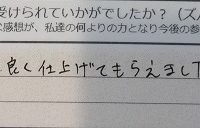 受けられていかがでしたか？（ズ
感想が、私達の何よりの力となり今後の参
良く仕上げてもらえまし